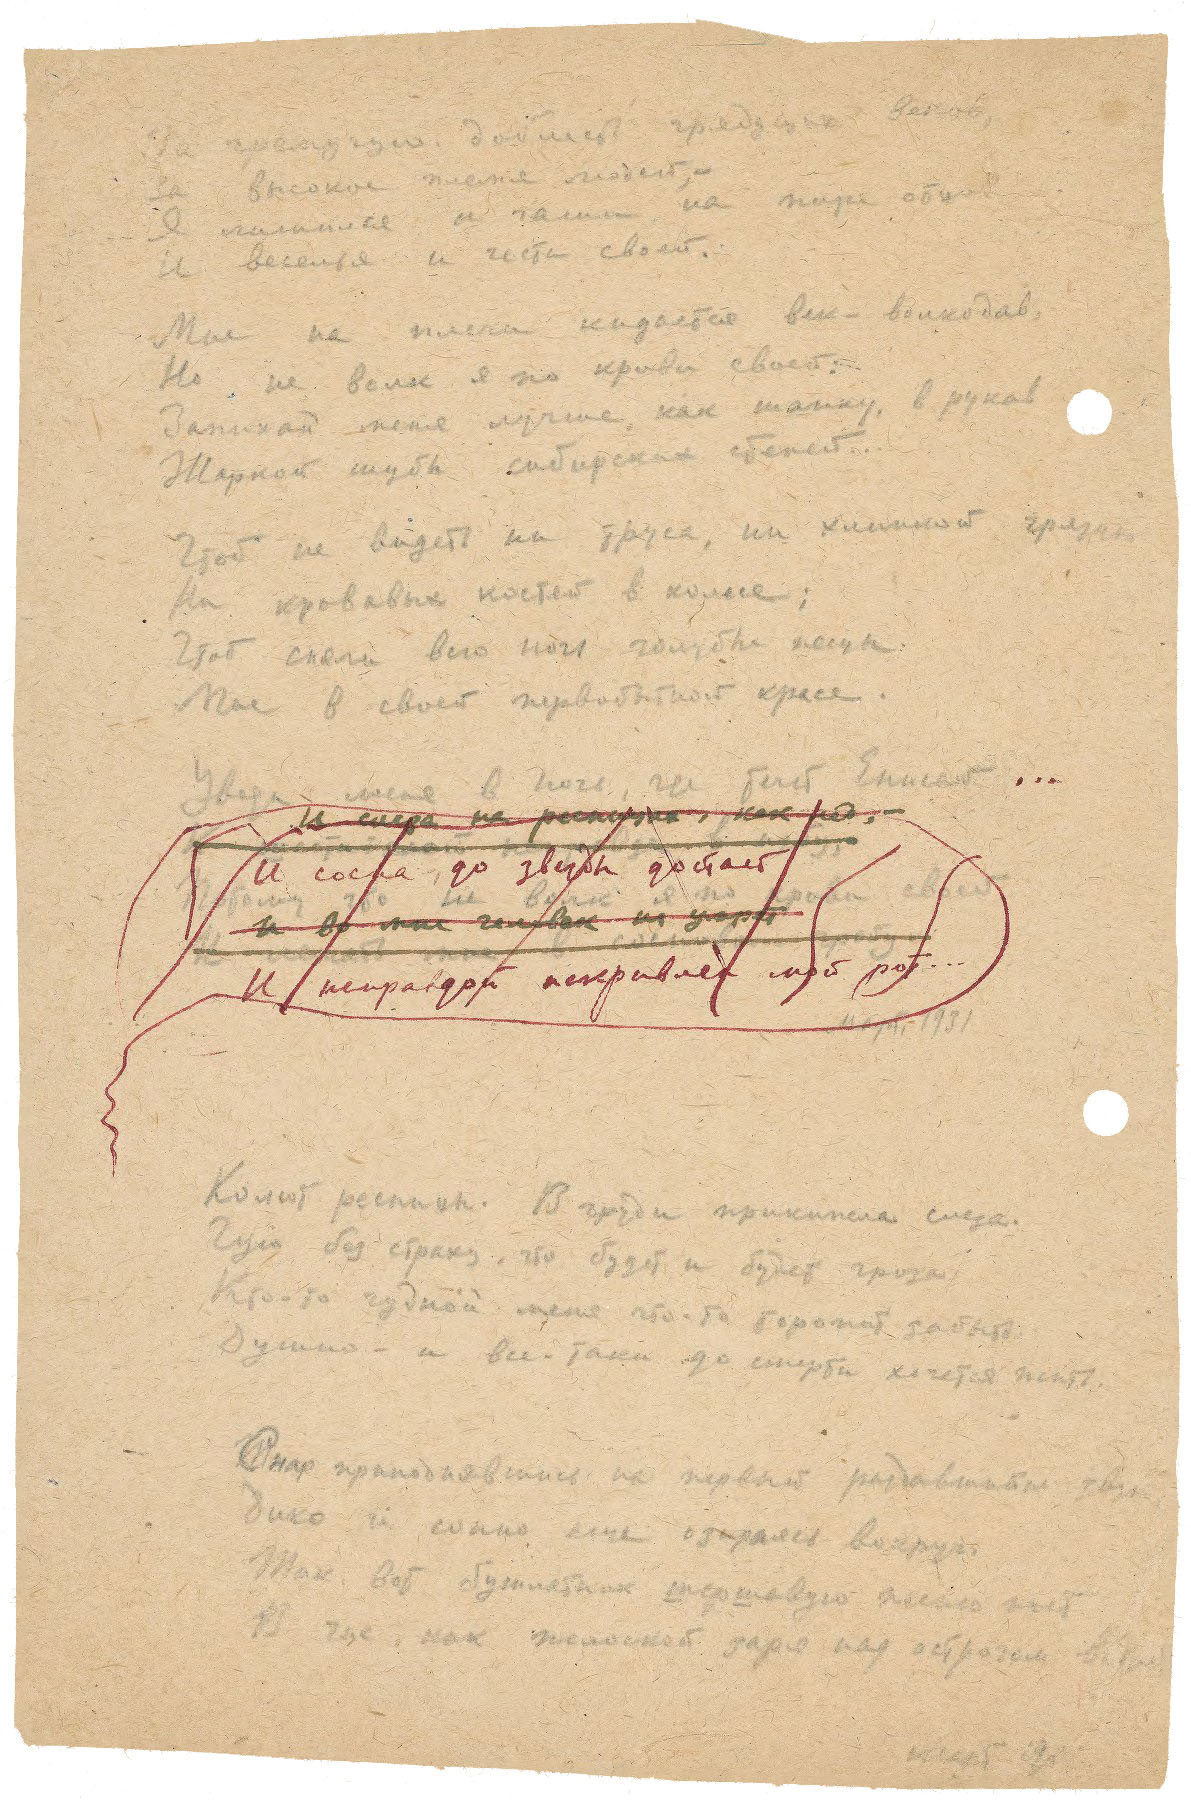 За гремучую доблесть грядущих веков,
За высокое племя людей,–
Я лишился и чаши на пире отцов
И веселья и чести своей.
Мне на плечи кидается век–волкодав,
Но не волк я по крови своей:
Запихай меня лучше, как шапку, в рукав
Жаркой шубы сибирских степей...
Чтоб не видеть ни труса, ни хлипкой грязцы
Ни кровавых костей в колесе;
Чтоб сияли всю ночь голубые песцы
Мне в своей первобытной красе.
Уведи меня в ночь, где течёт Енисей ...
И слеза на ресницах, как лед,–
И сосна до звезды достает
Потому что не волк я по крови своей
И во мне человек не умрет
И неправдой искривлен мой рот...
март, 1931
Колют ресницы. В груди прикипела слеза.
Чую без страху, что будет и будет гроза.
Кто-то чудной меня что-то торопит забыть.
Душно – и все-таки до смерти хочется жить.
С нар приподнявшись на первый раздавшийся звук
Дико и сонно еще озираясь вокруг,
Так вот бушлатник шершавую песню поет
В час, как полоской заря над острогом встает
март